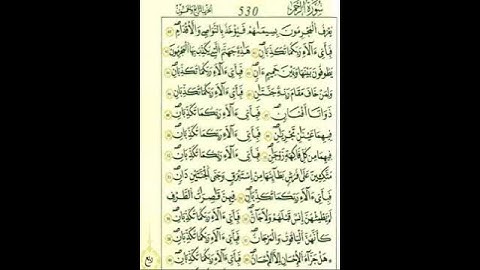 سُورَةُ الرَّحْمَٰن 530 الجزء السابع والعشرون
يُعْرَفُ الْمُجْرِمُونَ بِسِيمَٰهُمْ فَيُؤْخَذُ بِالنَّوَٰصِي وَالْأَقْدَامِ
فَبِأَيِّ ءَالَآءِ رَبِّكُمَا تُكَذِّبَانِ هَٰذِهِ جَهَنَّمُ الَّتِي يُكَذِّبُ بِهَا الْمُجْرِمُونَ
يَطُوفُونَ بَيْنَهَا وَبَيْنَ حَمِيمٍ ءَانٍ فَبِأَيِّ ءَالَآءِ رَبِّكُمَا تُكَذِّبَانِ
وَلِمَنْ خَافَ مَقَامَ رَبِّهِ جَنَّتَانِ فَبِأَيِّ ءَالَآءِ رَبِّكُمَا تُكَذِّبَانِ
ذَوَاتَآ أَفْنَانٍ فَبِأَيِّ ءَالَآءِ رَبِّكُمَا تُكَذِّبَانِ
فِيهِمَا عَيْنَانِ تَجْرِيَانِ فَبِأَيِّ ءَالَآءِ رَبِّكُمَا تُكَذِّبَانِ
فِيهِمَا مِن كُلِّ فَٰكِهَةٍ زَوْجَانِ فَبِأَيِّ ءَالَآءِ رَبِّكُمَا تُكَذِّبَانِ
مُتَّكِئِينَ عَلَىٰ فُرُشٍ بَطَآئِنُهَا مِنْ إِسْتَبْرَقٍ وَجَنَى الْجَنَّتَيْنِ دَانٍ
فَبِأَيِّ ءَالَآءِ رَبِّكُمَا تُكَذِّبَانِ فِيهِنَّ قَٰصِرَٰتُ الطَّرْفِ
لَمْ يَطْمِثْهُنَّ إِنسٌ قَبْلَهُمْ وَلَا جَآنٌّ فَبِأَيِّ ءَالَآءِ رَبِّكُمَا تُكَذِّبَانِ
كَأَنَّهُنَّ الْيَاقُوتُ وَالْمَرْجَانُ فَبِأَيِّ ءَالَآءِ رَبِّكُمَا تُكَذِّبَانِ
هَلْ جَزَآءُ الْإِحْسَٰنِ إِلَّا الْإِحْسَٰنُ فَبِأَيِّ ءَالَآءِ رَبِّكُمَا تُكَذِّبَانِ
ربع